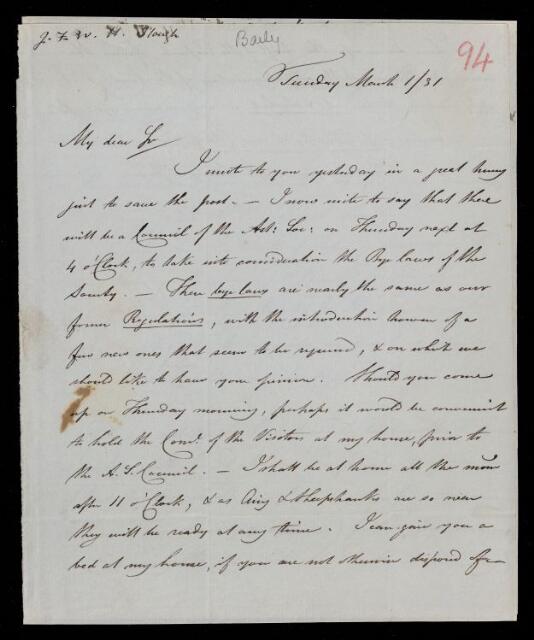 J. F. W. H. Slough
Baily
94
Tuesday March 1/31
My dear Sr
I wrote to you yesterday in a great hurry
just to save the post. — I now write to say that there
will be a Council of the Ast: Soc: on Thursday next at
4 o'Clock, to take into consideration the Bye laws of the
Society. — These bye laws are nearly the same as our
former Regulations, with the introduction however of a
few new ones that seem to be required, & on which we
should like to have your opinion. Should you come
up on Thursday morning, perhaps it would be convenient
to hold the Come. of the Visitors at my house, prior to
the A. S. Council. — I shall be at home all the morn
after 11 o'Clock, & as Airy & Sheepshanks are so near
they will be ready at any time. I can give you a
bed at my house, if you are not otherwise disposed of —